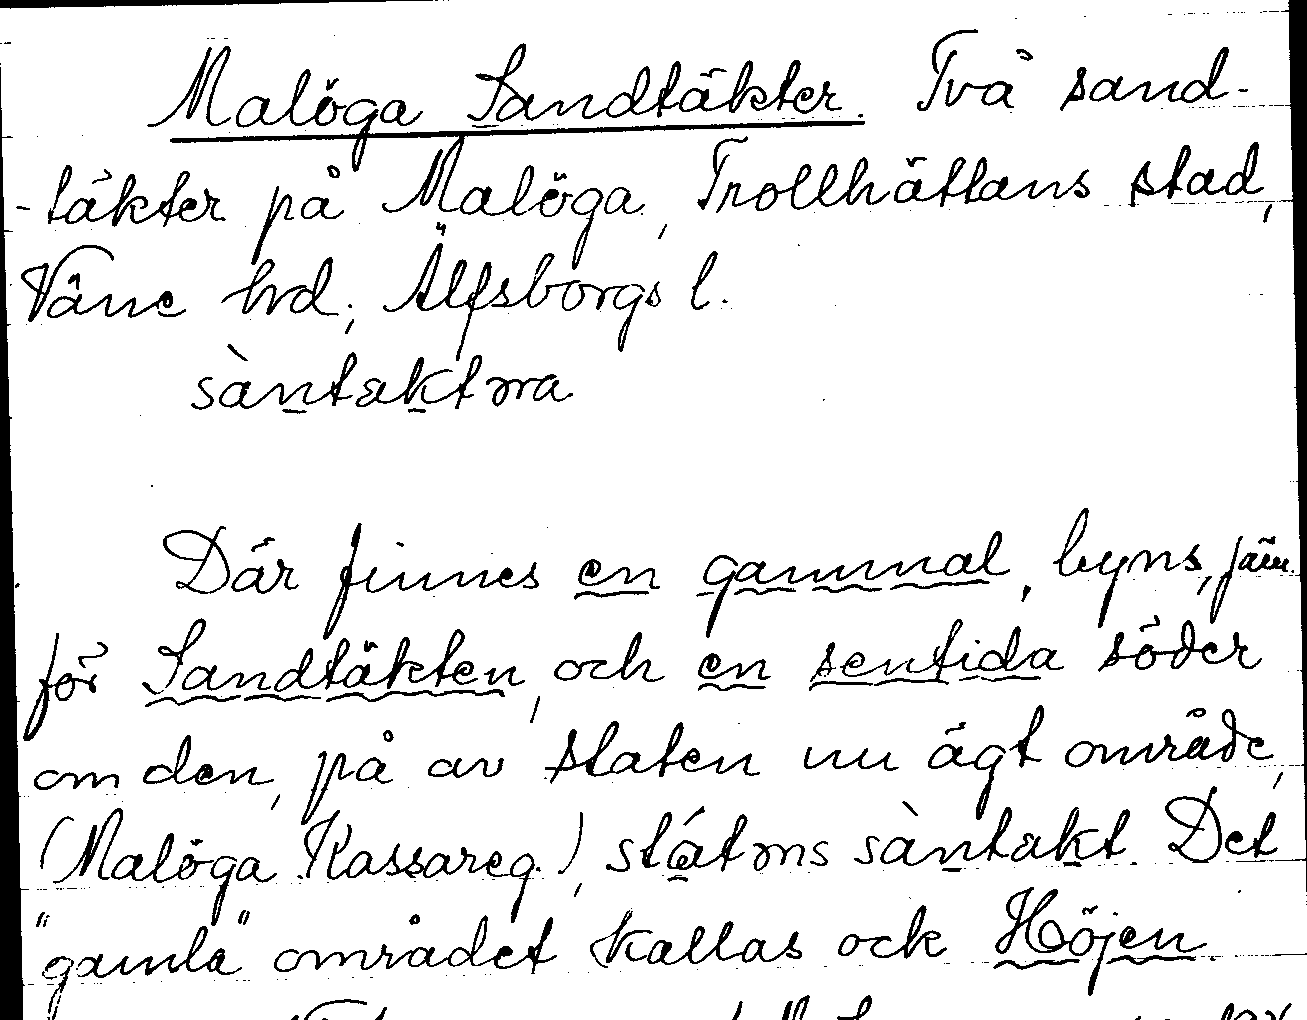 Malöga Sandtäkter. Två sand-
-täkter på Malöga, Trollhättans stad,
Väne hd; Älfsborgs l.
sàntaktɷra
Där finnes en gammal, byns, jäm-
för Sandtäkten, och en sentida söder
om den, på av staten nu ägt område,
(Malöga Kassareg.), státɷns sàntakt. Det
"gamla" området kallas ock Höjen.